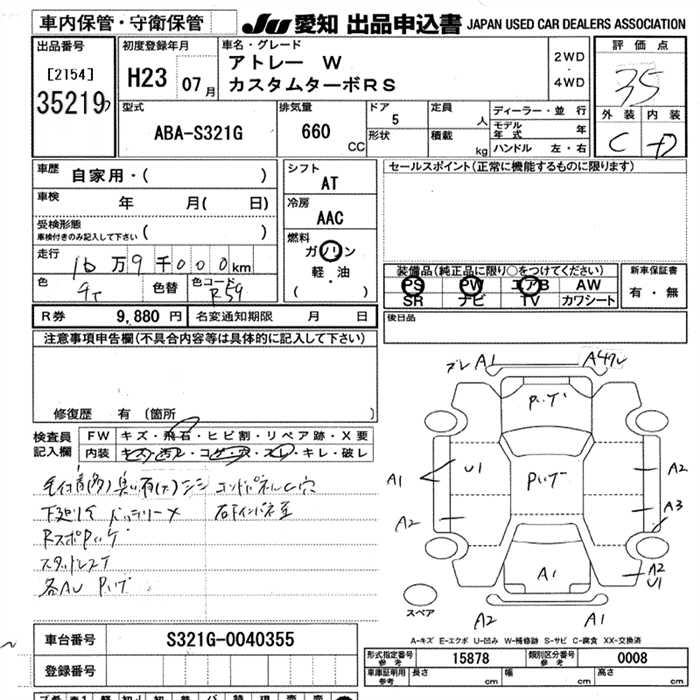 車内保管・守衛保管
JU 愛知 出品申込書 JAPAN USED CAR DEALERS ASSOCIATION
出品番号
[2154]
35219
初度登録年月
H23 07月
車名・グレード
アトレー W
カスタムターボRS
2WD
・
4WD
評価点
35
外装 内装
C D
型式
ABA-S321G
排気量
660
CC
ドア
5
形状
定員
人
積載
kg
ディーラー・並行
モデル年式 年
ハンドル 左・右
車歴
自家用・( )
車検
年 月( 日)
受検形態
車検付きのみ記入して下さい ( )
走行
16万9千000km
色
色替
色コード
R59
シフト
AT
冷房
AAC
燃料
ガソリン
軽・油
( )
セールスポイント(正常に機能するものに限ります)
装備品(純正品に限り○をつけてください)
PS PW エアB AW
SR ナビ TV カワシート
新車保証書
有・無
後日品
R券 9,880円 名変通知期限 月 日
注意事項申告欄(不具合内容等は具体的に記入して下さい)
修復歴 有 (箇所 )
検査員
記入欄
FW キズ・飛石・ヒビ割・リペア跡・X要
内装 キズ・汚レ・コゲ・穴・スレ・キレ・破レ
コンパネルC穴
下廻りサ バッテリーメ
RスポPハゲ
スタッドレス
各AU Pハゲ
A1
Pハゲ
U1
Pハゲ
A1
A2
A2
A3
A1
A2
U1
スペア
A2
A1
A-キズ E-エクボ U-凹み W-補修跡 S-サビ C-腐食 XX-交換済
車台番号 S321G-0040355
登録番号
形式指定番号
参考
15878
類別区分番号
参考
0008
車庫証明用
参考
長さ cm 幅 cm 高さ cm